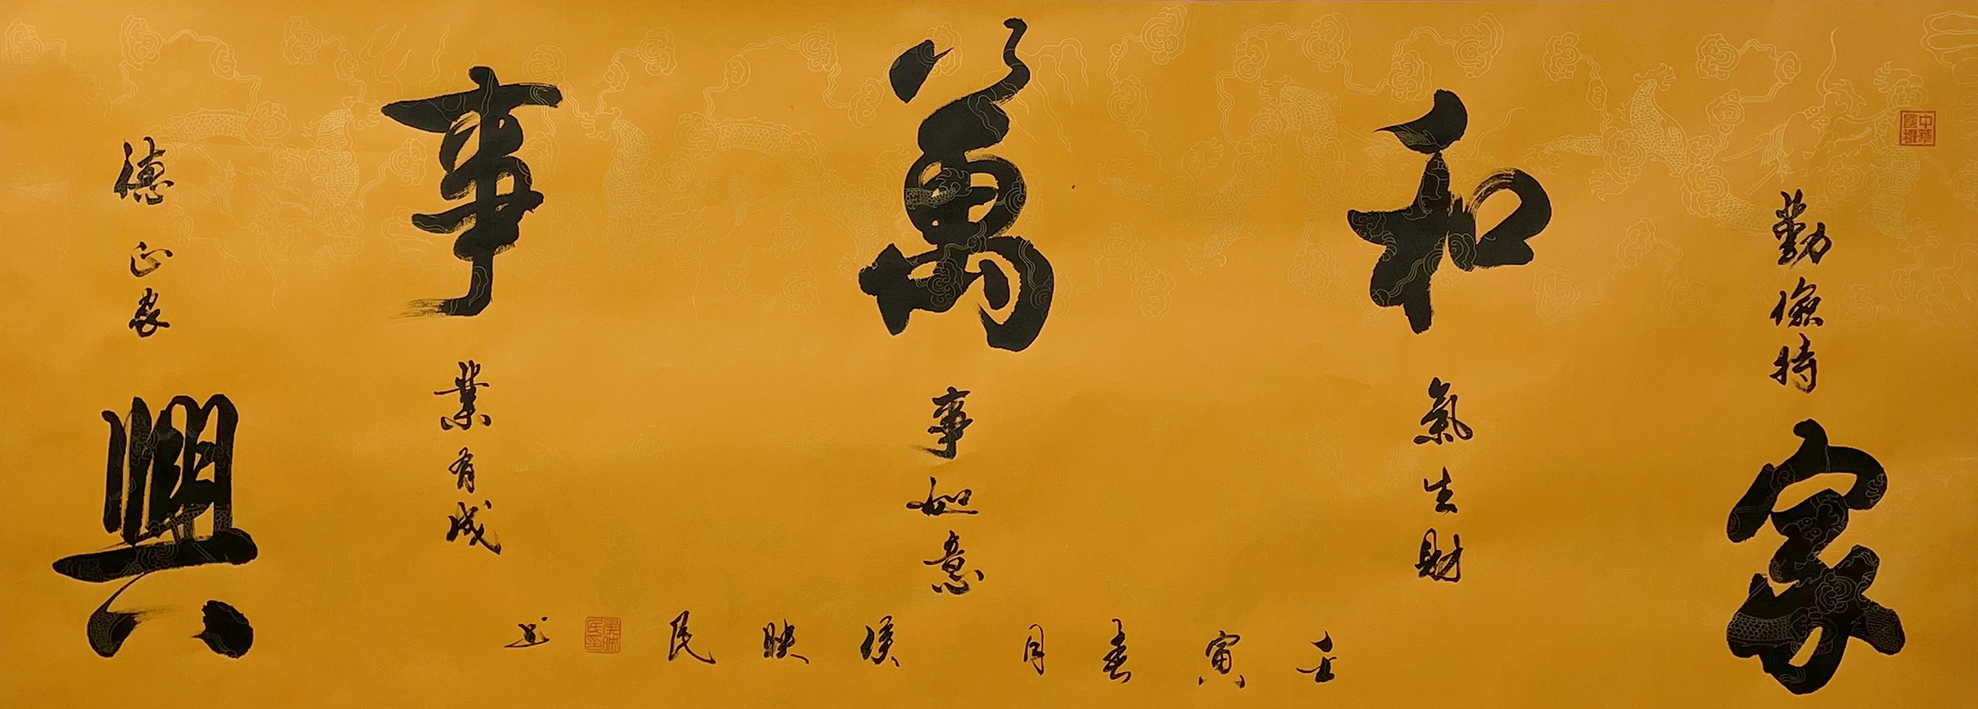 勤儉持家
和氣生財
萬事如意
事業有成
德正家興
壬寅春月 侯映民 书